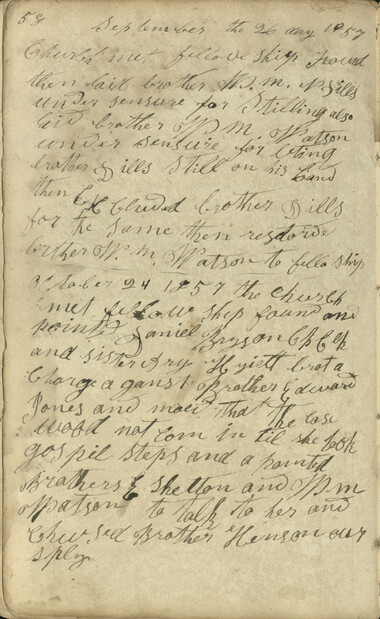 58
September the 26 day 1857
Church met fellow ship found
then laid brother W. M. Dills
under sensure for Stilling also
laid brother W. M. Watson
under sensure for leting
brother Dills Still on his land
then Excluded brother Dills
for the same then restorde
brther W. M. Watson to fello ship
October 24 1857 the church
met fellow ship found and
pointed Daniel Bryson Clk
and sister Hyiett brot a
Charge aganst Brother Edward
Jones and moed that the case
wood not com in til she took
gospil steps and a pointed
Brothers E Shelton and W m
Watson to talk to her and
Chused Brother Henson our
sply